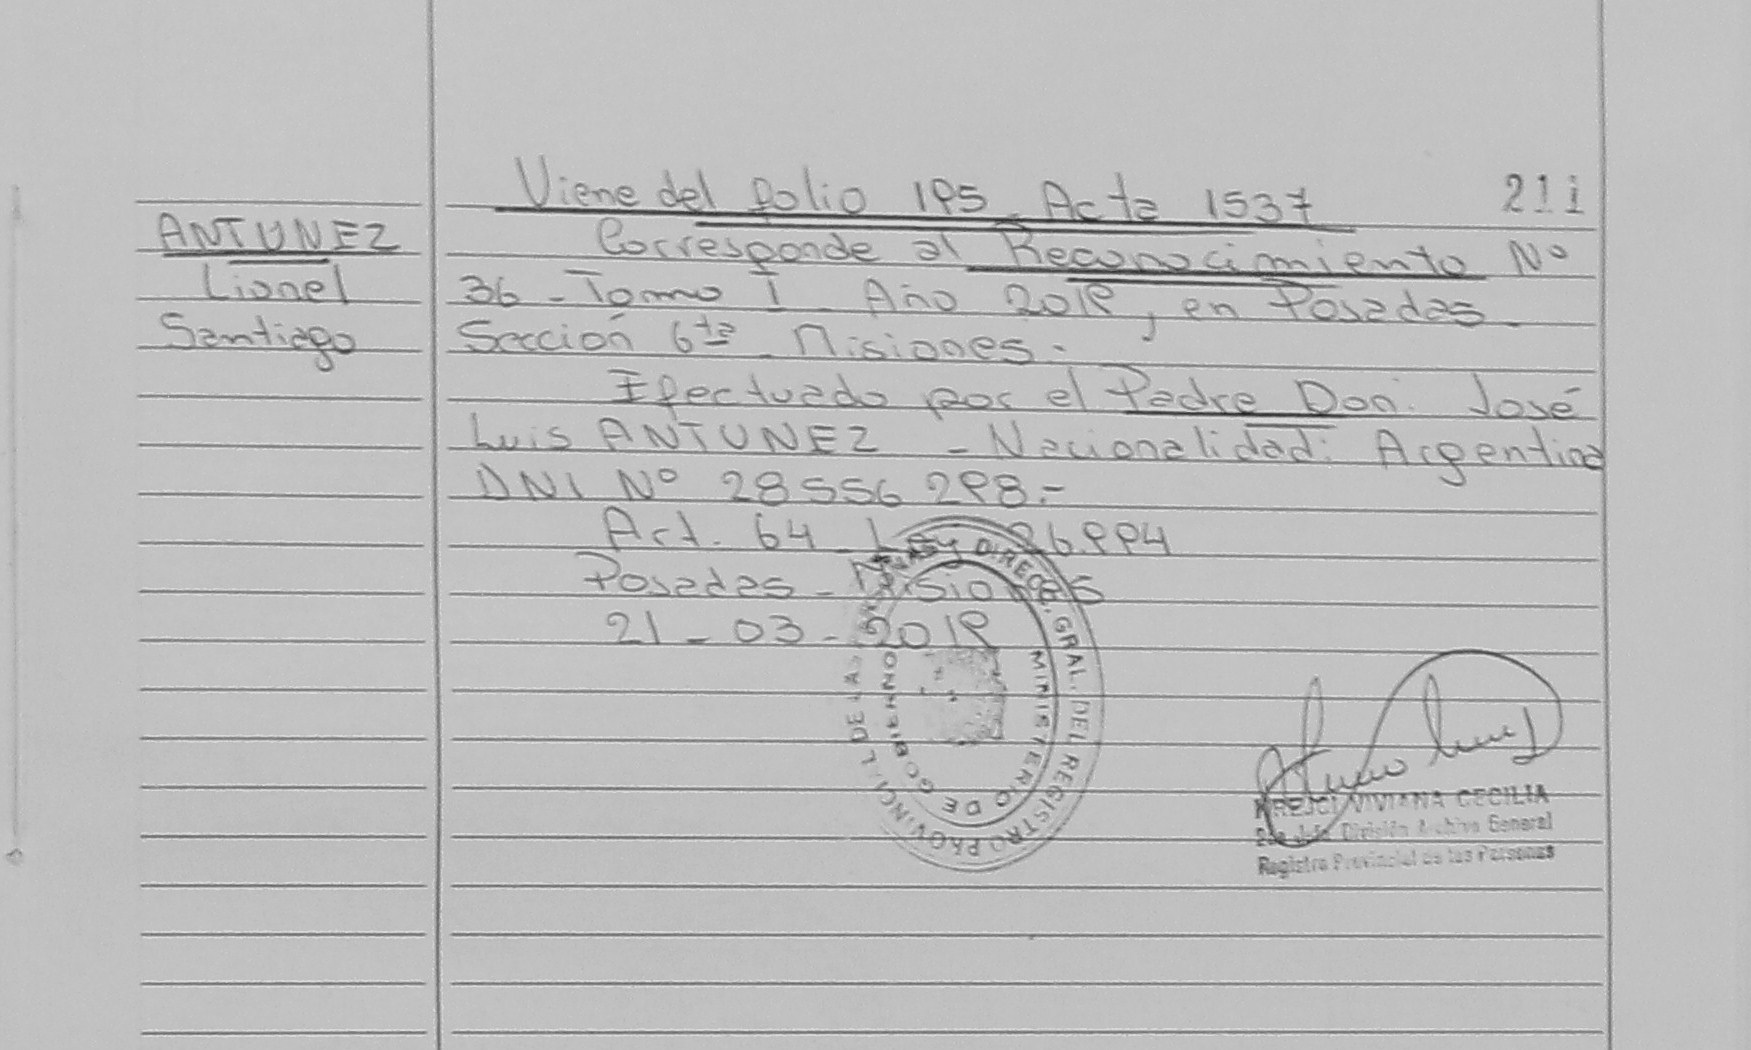 Viene del folio 195 - Acta 1537
211
ANTUNEZ
Lionel
Santiago
Corresponde al Reconocimiento Nº
36 - Tomo I - Año 2019, en Posadas -
Sección 6ta - Misiones.
Efectuado por el Padre Don: José
Luis ANTUNEZ - Nacionalidad: Argentina
DNI Nº 28556298.-
Art. 64 Ley 26.994
Posadas - Misiones
21 - 03 - 2019
DIRECC. GRAL. DEL REGISTRO PROVINCIAL DE LAS
MINISTERIO DE GOBIERNO
KREJCI VIVIANA CECILIA
División Archivo General
Registro Provincial de las Personas